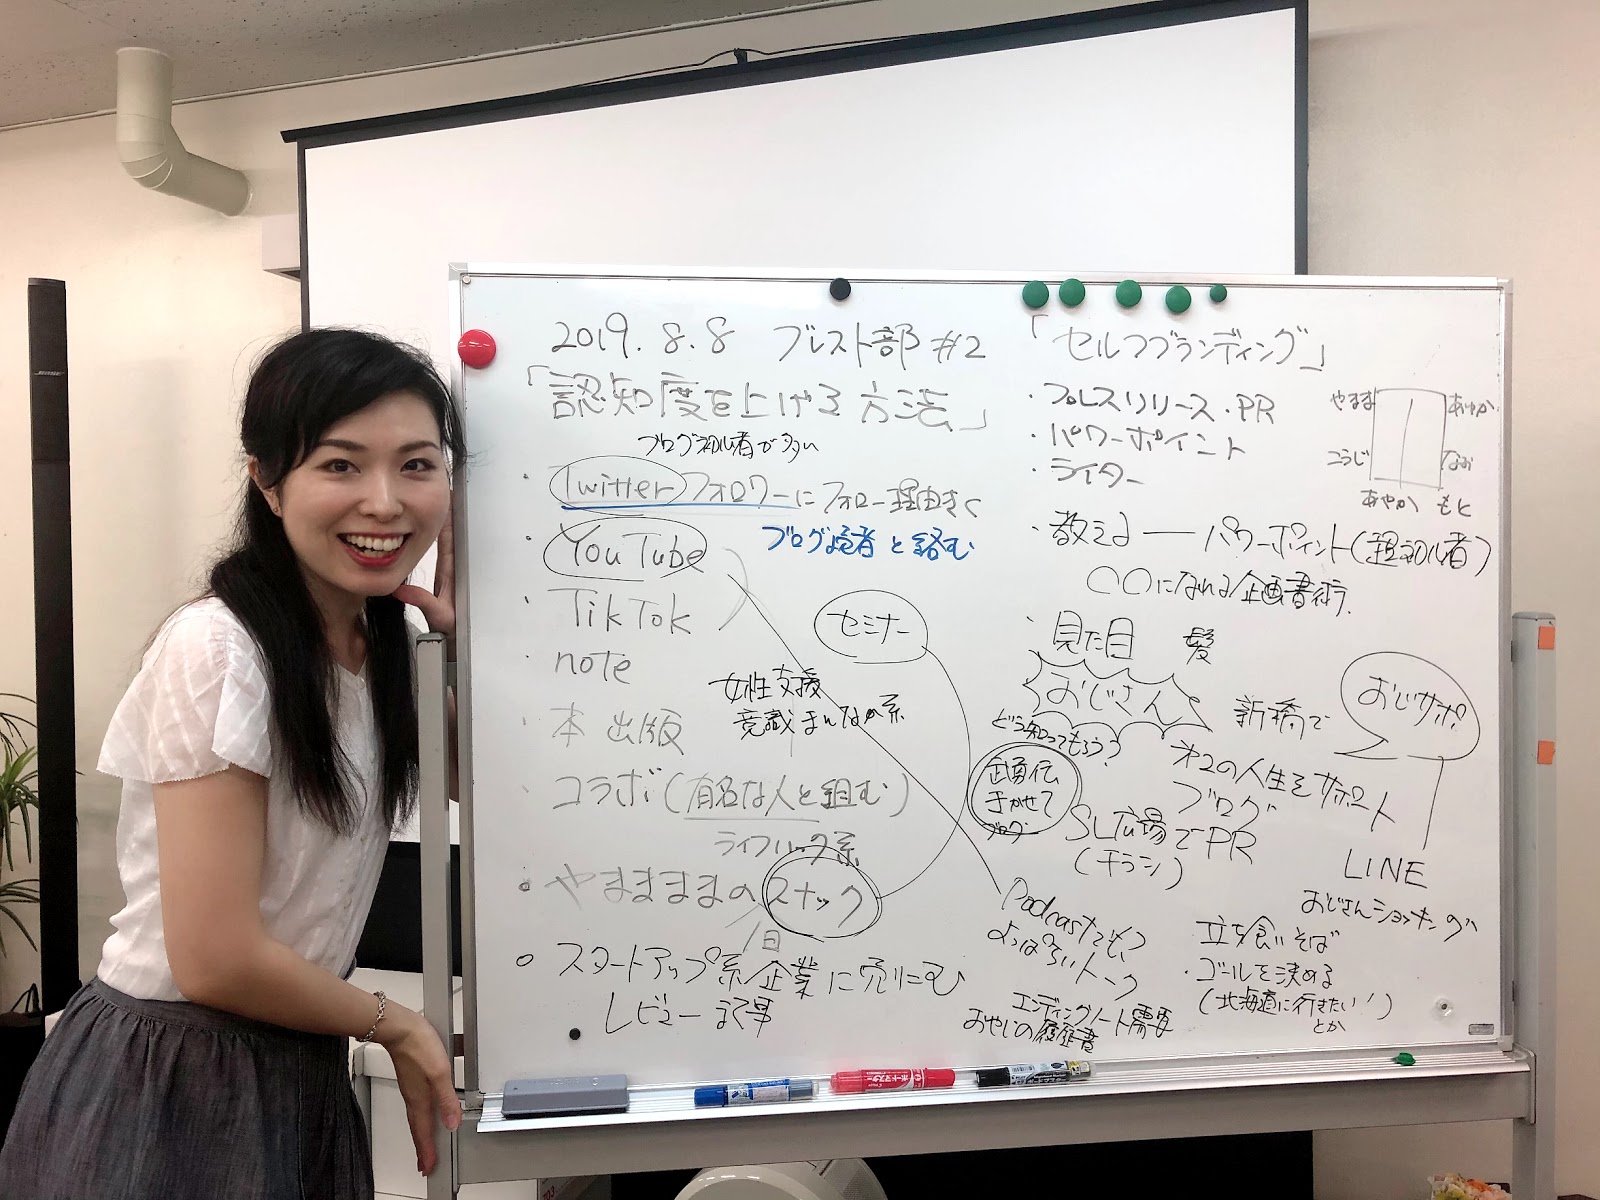 2019.8.8 ブレスト部#2
「認知度を上げる方法」
ブログ初心者が多い
・Twitterフォロワーにフォロー理由きく
ブログ読者と絡む
・YouTube
・TikTok
・note
・本 出版
・コラボ(有名な人と組む)
ライフハック系
○やまままのスナック
1日
○スタートアップ系企業に売りこむ
レビュー記事
セミナー
女性支援
「セルフブランディング」
・プレスリリース・PR
・パワーポイント
・ライター
やまま
あゆか
こうじ
なお
あやか
もと
・教える──パワーポイント(超初心者)
○○になれる企画書術
・見た目 髪
おじさん
どう知ってもらう?
武勇伝
きかせて
ブログ
新橋で
おじサポ
第2の人生をサポート
ブログ
SL広場でPR
(チラシ)
LINE
おじさんショッキング
Podcastでも
よっぱらいトーク
エンディングノート需要
おやじの履歴書
・立ち食いそば
・ゴールを決める
(北海道に行きたい!)
とか
BOSE